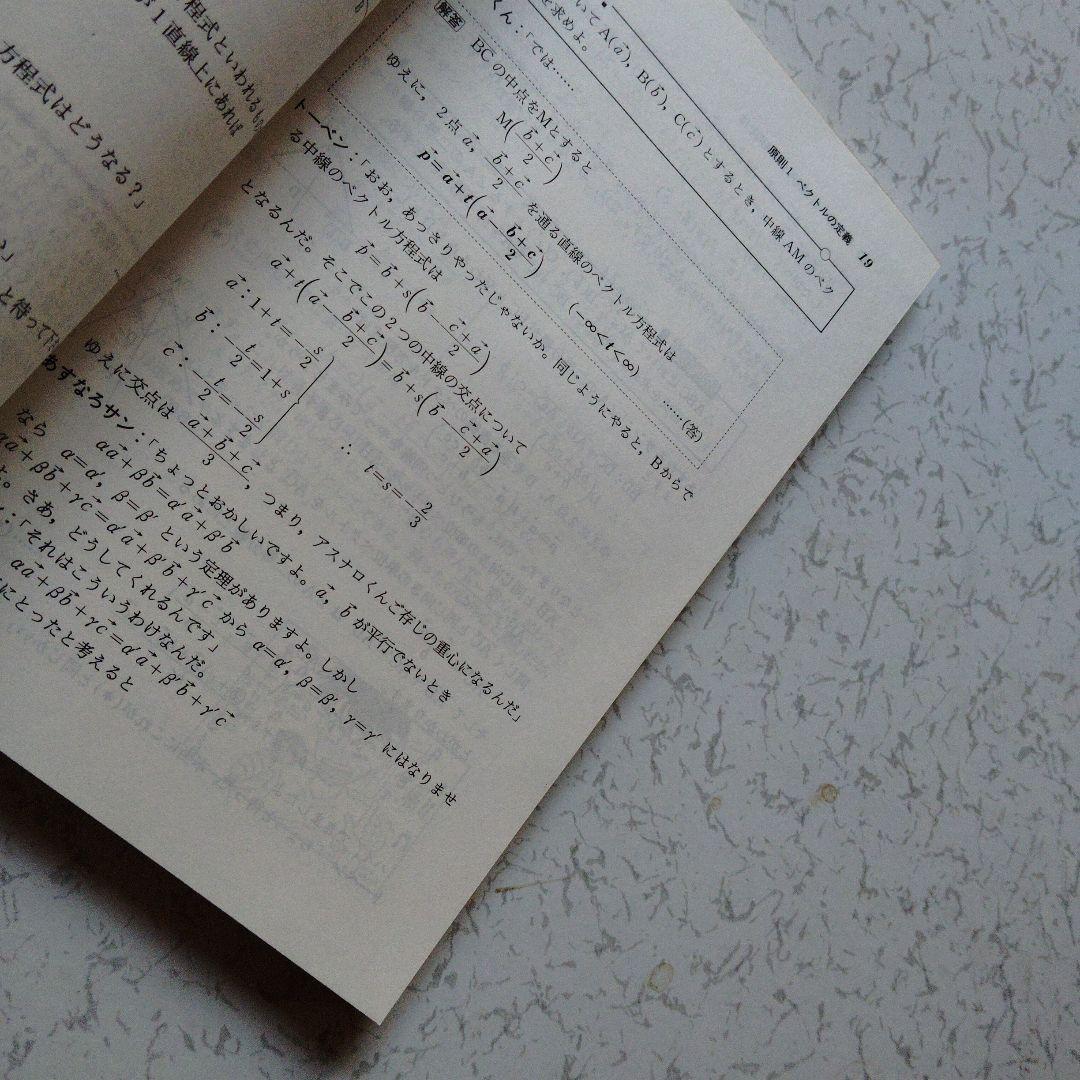 程式といわれるもの
1直線上にあれば
方程式はどうなる?」
と待って
原則1 ベクトルの定義 19
いて A(a⃗), B(b⃗), C(c⃗) とするとき,中線 AM のベク
を求めよ。
解答
くん:「では……
BC の中点をMとすると
M((b⃗+c⃗)/2)
ゆえに,2点 a⃗, (b⃗+c⃗)/2 を通る直線のベクトル方程式は
p⃗=a⃗+t(a⃗-(b⃗+c⃗)/2) (-∞<t<∞) ……(答)
トーベン:「おお,あっさりやったじゃないか。同じようにやると,Bからで
る中線のベクトル方程式は
p⃗=b⃗+s(b⃗-(c⃗+a⃗)/2)
となるんだ。そこでこの2つの中線の交点について
a⃗+t(a⃗-(b⃗+c⃗)/2)=b⃗+s(b⃗-(c⃗+a⃗)/2)
a⃗:1+t=-s/2
b⃗:-t/2=1+s
c⃗:-t/2=-s/2
∴ t=s=-2/3
ゆえに交点は (a⃗+b⃗+c⃗)/3,つまり,アスナロくんご存じの重心になるんだ」
あすなろサン:「ちょっとおかしいですよ。a⃗, b⃗ が平行でないとき
αa⃗+βb⃗=α′a⃗+β′b⃗
なら α=α′, β=β′ という定理がありますよ。しかし
αa⃗+βb⃗+γc⃗=α′a⃗+β′b⃗+γ′c⃗ から α=α′, β=β′, γ=γ′ にはなりませ
よ。さあ,どうしてくれるんです」
:「それはこういうわけなんだ。
αa⃗+βb⃗+γc⃗=α′a⃗+β′b⃗+γ′c⃗
にとったと考えると